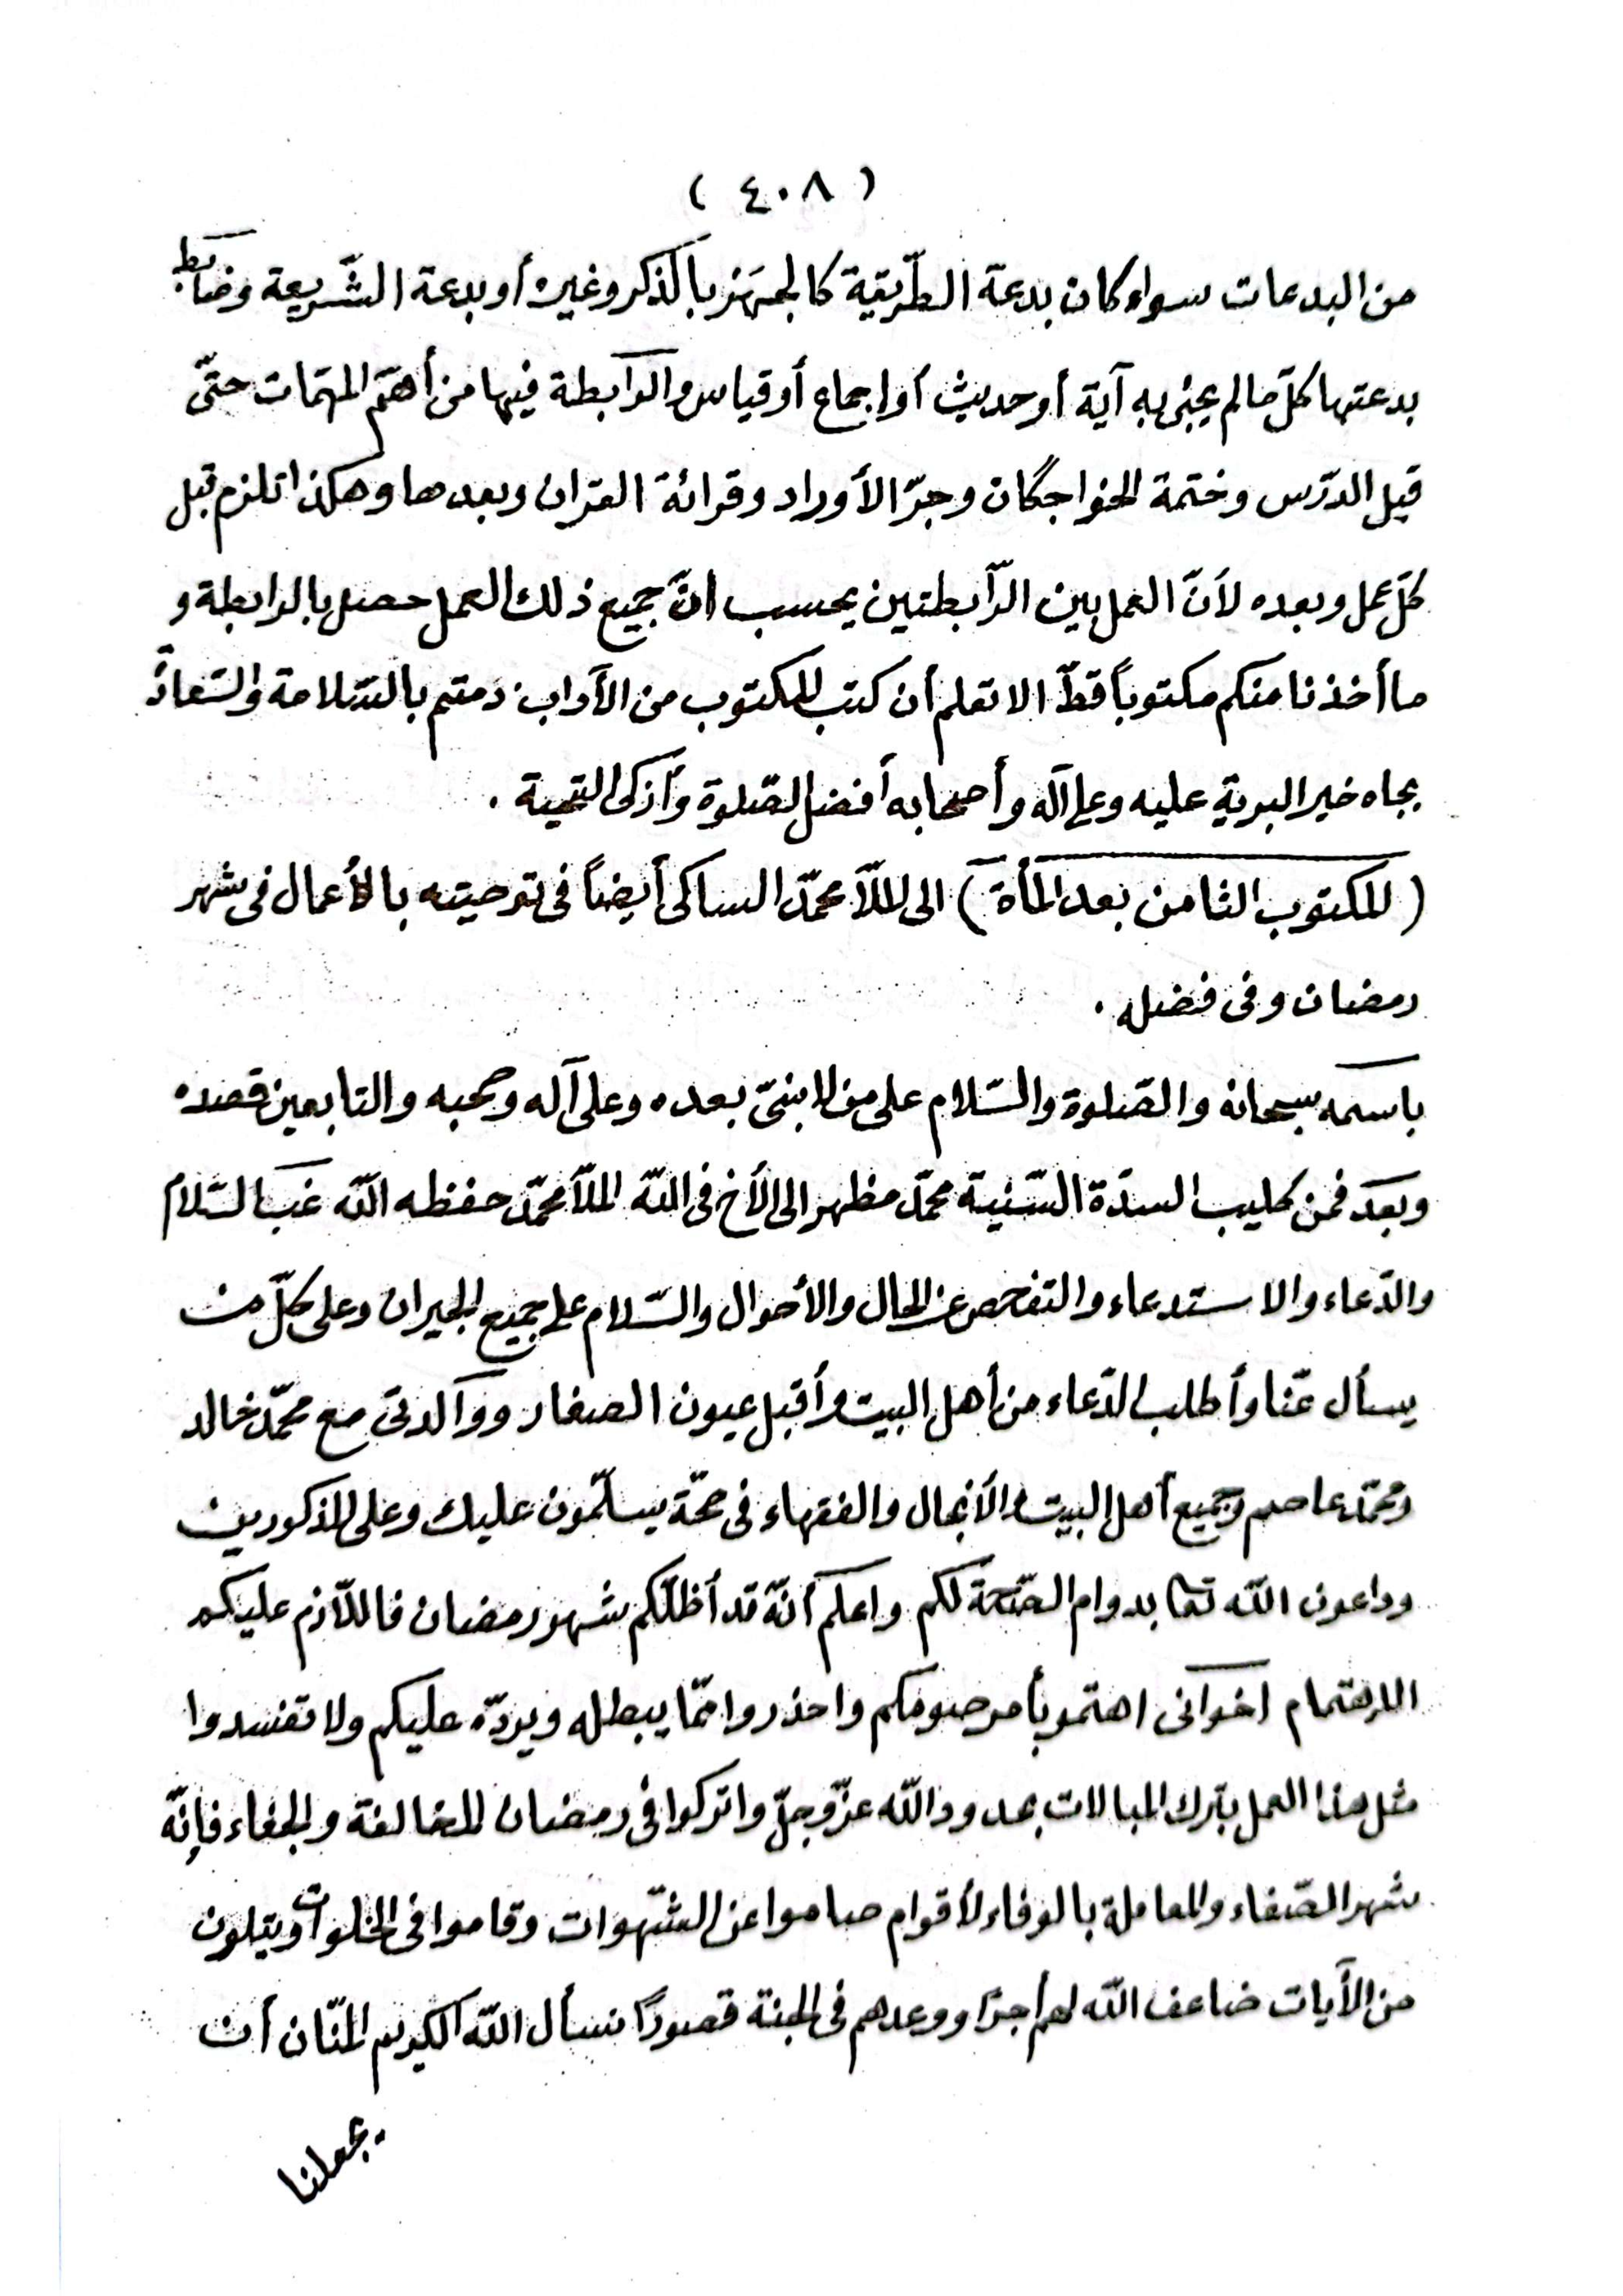 ( ٤٠٨ )
من البدعات سواء كان بدعة الطّريقة كالجهر بالذكر وغيره أو بدعة الشّريعة وضابط
بدعتها كلّ ما لم يجئ به آية أو حديث أو اجماع أو قياس والرابطة فيها من أهمّ المهمّات حتّى
قبل الدّرس وختمة الخواجگان وجرّ الأوراد وقرائة القران وبعدها وهكذا تلزم قبل
كلّ عمل وبعده لأنّ العمل بين الرّابطتين يحسب انّ جميع ذلك العمل حصل بالرابطة و
ما أخذنا منكم مكتوباً قطّ الا تعلم أن كتب المكتوب من الآداب دمتم بالسّلامة والسّعادة
بجاه خير البرية عليه وعلى آله وأصحابه أفضل الصّلوة وأزكى التحية .
( المكتوب الثامن بعد المأة ) الى الملّا محمّد الساكى أيضاً فى توصيته بالأعمال فى شهر
رمضان وفى فضله .
باسمه سبحانه والصّلوة والسّلام على من لا نبىّ بعده وعلى آله وصحبه والتابعين قصده
وبعد فمن كليب السدّة السّنية محمّد مظهر الى الأخ فى اللّه الملّا محمّد حفظه اللّه غب السّلام
والدّعاء والاستدعاء والتفحص عن الحال والأحوال والسّلام على جميع الجيران وعلى كلّ من
يسأل عنّا وأطلب الدّعاء من أهل البيت وأقبل عيون الصغار ووالدتى مع محمّد خالد
ومحمّد عاصم وجميع أهل البيت والأنجال والفقهاء فى صحّة يسلّمون عليك وعلى المذكورين
وداعون اللّه تعا بدوام الصّحّة لكم واعلم أنّه قد أظلّكم شهر رمضان فاللّازم عليكم
الاهتمام اخوانى اهتمو بأمر صومكم واحذروا ممّا يبطله ويردّه عليكم ولا تفسدوا
مثل هذا العمل بترك المبالات بحدود اللّه عزّ وجلّ واتركوا فى رمضان المخالفة والجفاء فإنّه
شهر الصّفاء والمعاملة بالوفاء لأقوام صاموا عن الشّهوات وقاموا فى الخلوات ويتلون
من الآيات ضاعف اللّه لهم أجرًا ووعدهم فى الجنة قصورًا نسأل اللّه الكريم المنّان أن
يجعلنا